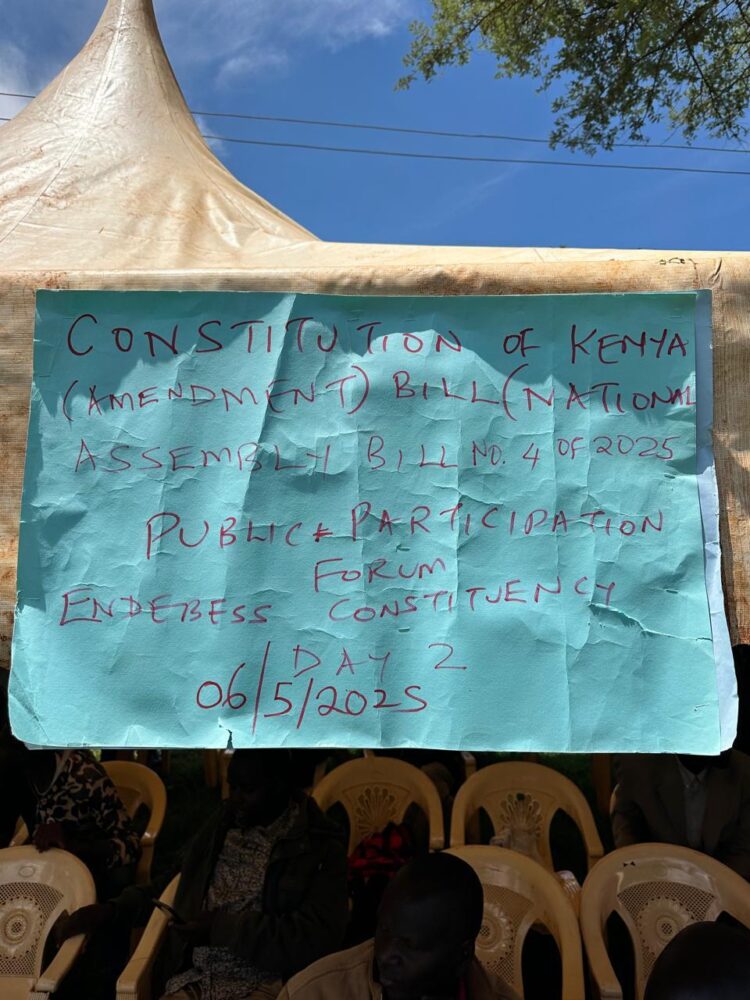 CONSTITUTION OF KENYA
(AMENDMENT) BILL (NATIONAL
ASSEMBLY BILL NO. 4 OF 2025
PUBLIC PARTICIPATION
FORUM
ENDEBESS CONSTITUENCY
DAY 2
06/5/2025